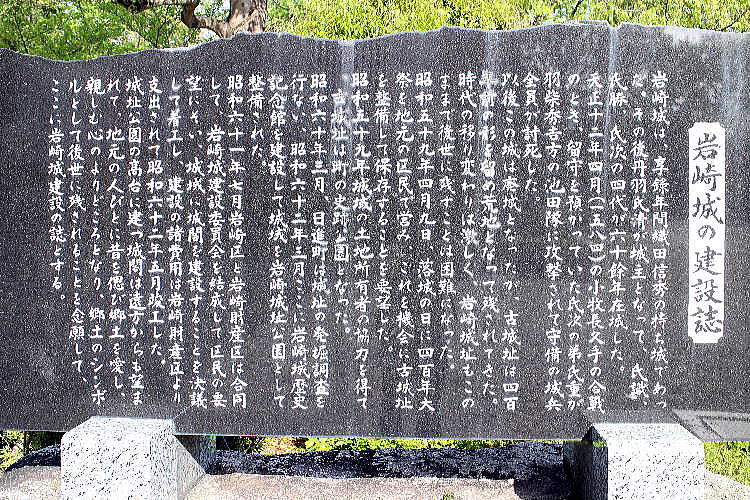 岩崎城の建設誌
岩崎城は、享録年間織田信秀の持ち城であっ
た。その後丹羽氏清が城主となって、氏識、
氏勝、氏次の四代が六十餘年在城した。
天正十二年四月(一五八四)の小牧長久手の合戦
のとき、留守を預かっていた氏次の弟氏重が
羽柴秀吉方の池田隊に攻撃されて守備の城兵
全員が討死した。
以後この城は廃城となったが、古城址は四百
年前の形を留め荒地となって残されてきた。
時代の移り変わりは激しく、岩崎城址もこの
まま後世に残すことは困難になった。
昭和五十九年四月九日、落城の日に四百年大
祭を地元の区民で営み、これを機会に古城址
を整備して保存することを要望した。
昭和五十九年城域の土地所有者の協力を得て
古城址は町の史跡公園となった。
昭和六十年三月、日進町は城址の発掘調査を
行ない、昭和六十二年三月ここに岩崎城歴史
記念館を建設して城域を岩崎城址公園として
整備された。
昭和六十一年七月岩崎区と岩崎財産区は合同
して、岩崎城建設委員会を結成して区民の要
望にそい、城域に城閣を建設することを決議
して着工し、建設の諸費用は岩崎財産区より
支出されて昭和六十二年五月竣工した。
城址公園の高台に建つ城閣は遠方からも望ま
れて、地元の人びとに昔を偲び郷土を愛し、
親しむ心のよりどころとなり、郷土のシンボ
ルとして後世に残されることを念願して、
ここに岩崎城建設の誌とする。